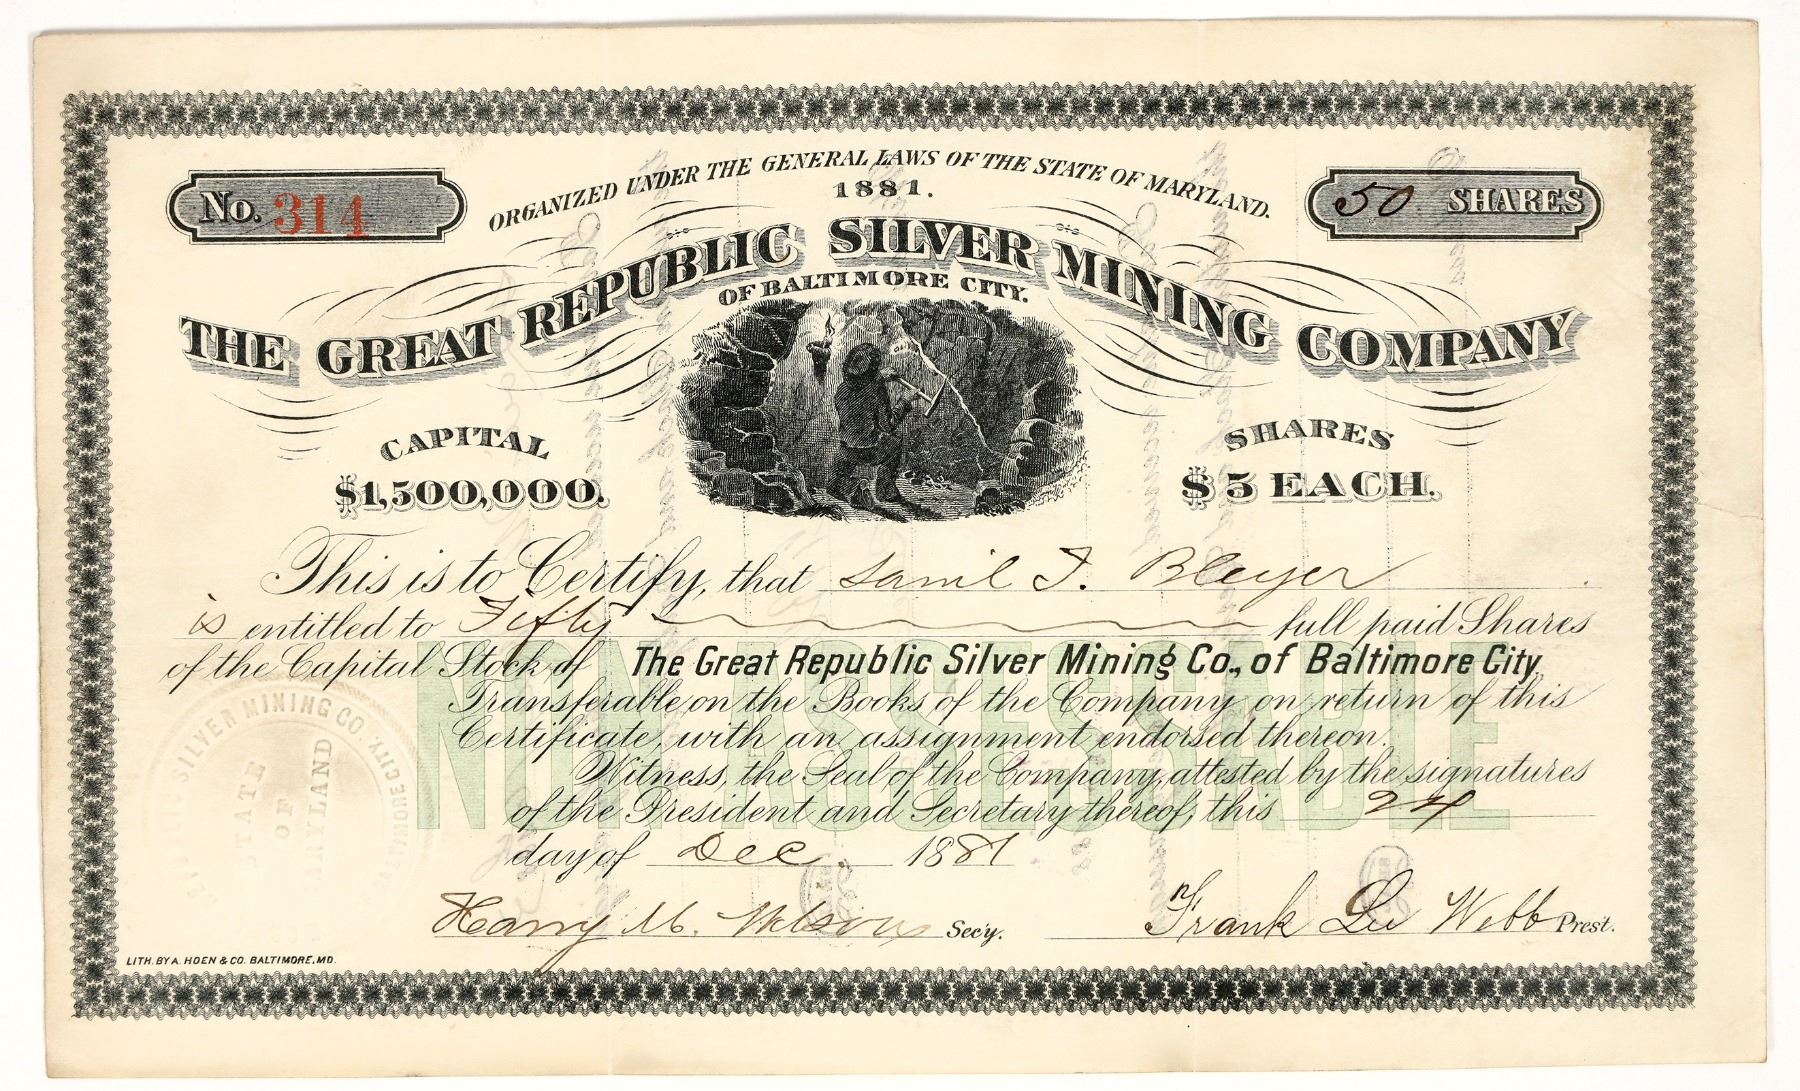 No. 314
ORGANIZED UNDER THE GENERAL LAWS OF THE STATE OF MARYLAND.
1881.
50 SHARES
THE GREAT REPUBLIC SILVER MINING COMPANY
OF BALTIMORE CITY.
CAPITAL
$1,500,000.
SHARES
$5 EACH.
This is to Certify, that Saml T. Bleyer
is entitled to Fifty full paid Shares
of the Capital Stock of The Great Republic Silver Mining Co., of Baltimore City,
Transferable on the Books of the Company on return of this
Certificate, with an assignment endorsed thereon.
Witness, the Seal of the Company, attested by the signatures
of the President and Secretary thereof, this 24
day of Dec 1881
NON ASSESSABLE
SILVER MINING CO.
STATE
OF
MARYLAND
Harry M. Sec'y.
Frank Webb Prest.
LITH. BY A. HOEN & CO. BALTIMORE, MD.